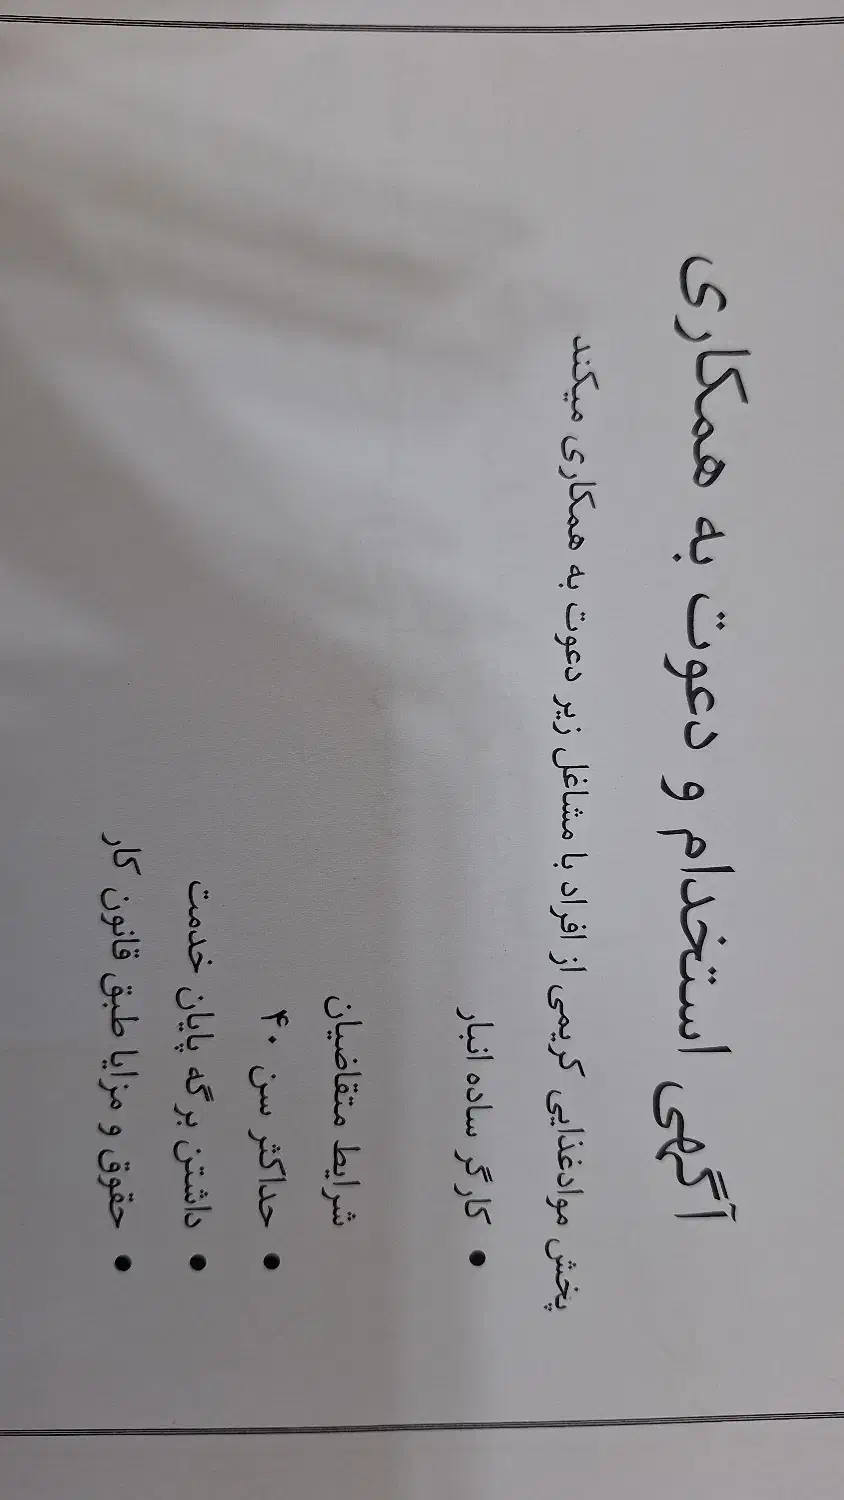 آگهی استخدام و دعوت به همکاری
پخش موادغذایی کریمی از افراد با مشاغل زیر دعوت به همکاری میکند
• کارگر ساده انبار
شرایط متقاضیان
• حداکثر سن ۴۰
• داشتن برگه پایان خدمت
• حقوق و مزایا طبق قانون کار